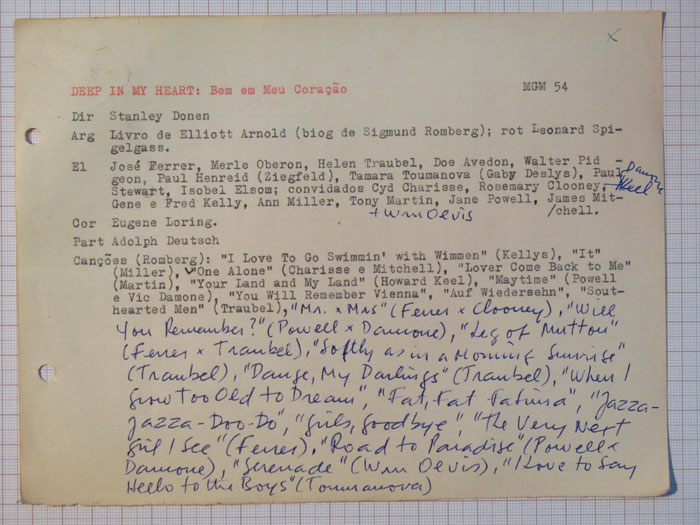 x
DEEP IN MY HEART: Bem em Meu Coração MGM 54
Dir Stanley Donen
Arg Livro de Elliott Arnold (biog de Sigmund Romberg); rot Leonard Spi-
gelgass.
El José Ferrer, Merle Oberon, Helen Traubel, Doe Avedon, Walter Pid -
geon, Paul Henreid (Ziegfeld), Tamara Toumanova (Gaby Deslys), Paul
Stewart, Isobel Elsom; convidados Cyd Charisse, Rosemary Clooney, Keel
Gene e Fred Kelly, Ann Miller, Tony Martin, Jane Powell, James Mit-
+ Wm Olvis /chell.
Cor Eugene Loring.
Part Adolph Deutsch
Canções (Romberg): "I Love To Go Swimmin' with Wimmen" (Kellys), "It"
(Miller), "One Alone" (Charisse e Mitchell), "Lover Come Back to Me"
(Martin), "Your Land and My Land" (Howard Keel), "Maytime" (Powell
e Vic Damone), "You Will Remember Vienna", "Auf Wiedersehn", "Sout-
hearted Men" (Traubel), "Mr. x Mrs" (Ferrer x Clooney), "Will
You Remember?" (Powell x Damone), "Leg of Mutton"
(Ferrer x Traubel), "Softly as in a Morning Sunrise"
(Traubel), "Dange, My Darlings" (Traubel), "When I
Grow Too Old to Dream", "Fat, Fat Fatima", "Jazza-
Jazza-Doo-Do", "Girls, Goodbye", "The Very Next
Girl I See" (Ferrer), "Road to Paradise" (Powell x
Damone), "Serenade" (Wm Olvis), "I Love to Say
Hello to the Boys" (Toumanova)